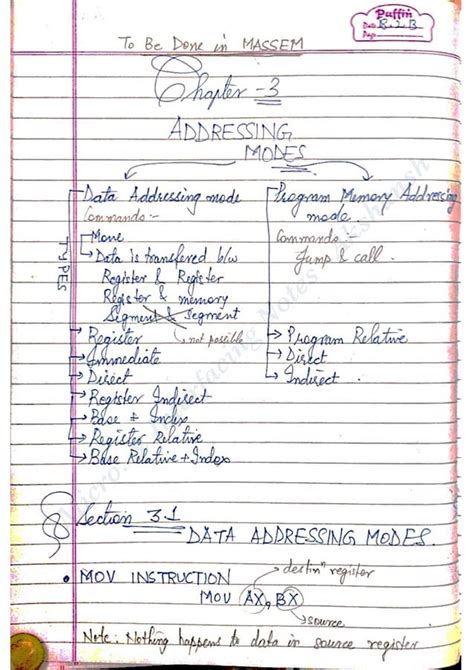 Puffin
Date
Page
To Be Done in MASSEM
Chapter - 3
ADDRESSING
MODES
Data Addressing mode
Commands :-
Move
Data is transfered b/w
Register & Register
Register & memory
Segment & Segment
not possible
TYPES
Register
Immediate
Direct
Register Indirect
Base + Index
Register Relative
Base Relative + Index
Program Memory Addressing
mode.
Commands :-
Jump & call.
Program Relative
Direct
Indirect
Section 3.1
DATA ADDRESSING MODES.
• MOV INSTRUCTION
destinⁿ register
MOV AX, BX
source
Note: Nothing happens to data in source register